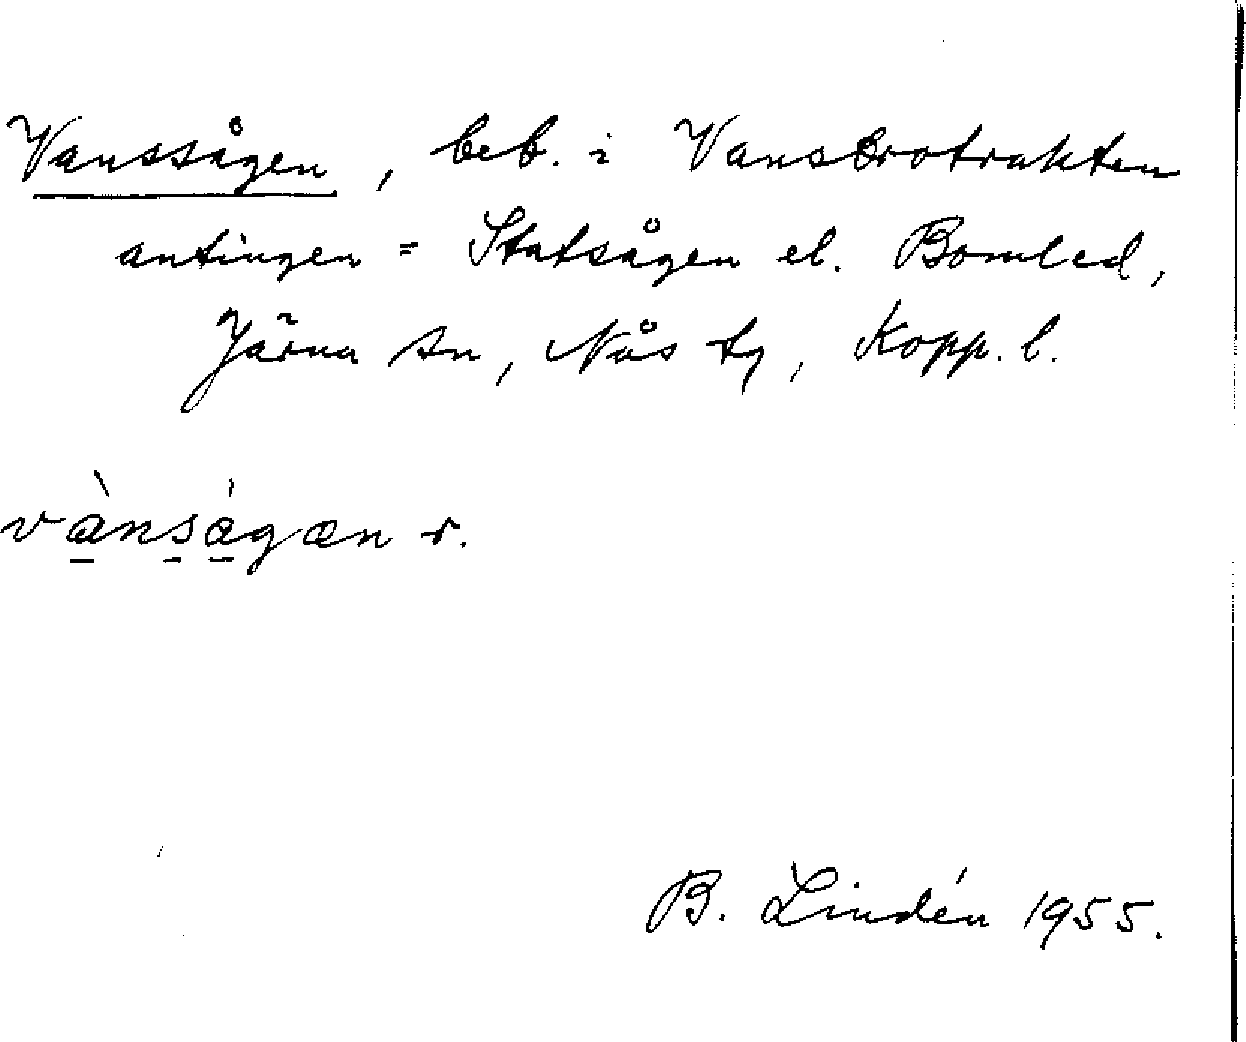 Vanssågen, beb. i Vansbrotrakten
antingen = Statsågen el. Bomled,
Järna sn, Nås tg, Kopp. l.
vànságæn r.
B. Lindén 1955.